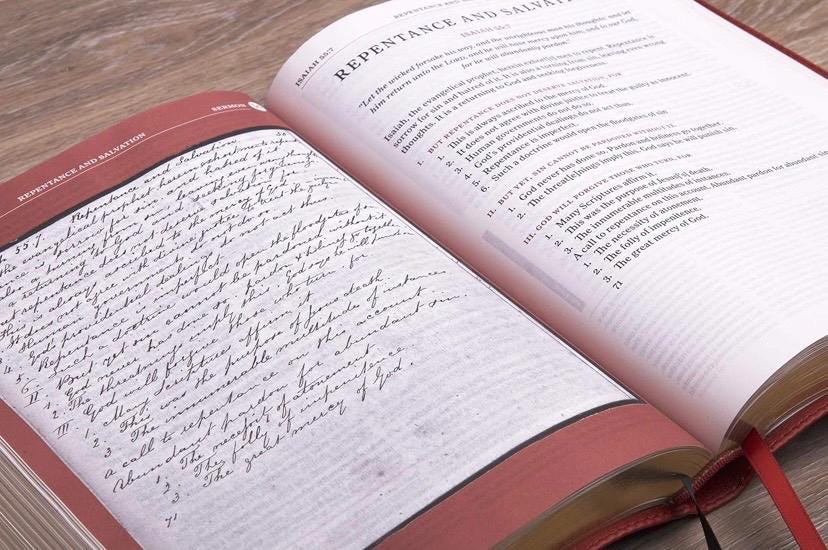 SERMON
REPENTANCE AND SALVATION
Repentance and Salvation
55.7
sorrow for sin and hatred of it
I. But repentance does not deserve salvation for
This is always ascribed to the mercy of God
It does not agree with divine justice
3. Human governments do not act thus
4. God's providential dealings
5. Repentance is imperfect
6. Such a doctrine would open the floodgates
II. But yet sin cannot be pardoned without it
1. God never has done so. Pardon & holiness go together
2. The threatenings imply this. God says he will
III. God will forgive those who turn, for
1. Many Scriptures affirm it
2. This was the purpose of Jesus death
3. The innumerable multitudes of instances
a call to repentance on this account
Abundant pardon for abundant sin.
1. The necessity of atonement
2. The folly of impenitence
3. The great mercy of God.
71
ISAIAH 55:7
REPENTANCE AND
REPENTANCE AND SALVAT
ISAIAH 55:7
"Let the wicked forsake his way, and the unrighteous man his thoughts: and let
him return unto the LORD, and he will have mercy upon him; and to our God,
for he will abundantly pardon."
Isaiah, the evangelical prophet, herein exhort[s] men to repent. Repentance is
sorrow for sin and hatred of it. It is also a turning from sin, leaving even wrong
thoughts. It is a returning to God and seeking
I. BUT REPENTANCE DOES NOT DESERVE SALVATION, FOR
1. This is always ascribed to the mercy of God.
2. It does not agree with divine justice to treat the guilty as innocent.
3. Human governments do not do so.
4. God's providential dealings do not act thus.
5. Repentance is imperfect.
6. Such a doctrine would open the floodgates of sin
II. BUT YET, SIN CANNOT BE PARDONED WITHOUT IT
1. God never has done so. Pardon and holiness go together.
2. The threat[en]ings imply this. God says he will punish sin.
III. GOD WILL FORGIVE THOSE WHO TURN, FOR
1. Many Scriptures affirm it.
2. This was the purpose of Jesus['s] death.
3. The innumerable multitudes of instances.
A call to repentance on this account. Abundant pardon for abundant sin
1. The necessity of atonement.
2. The folly of impenitence.
3. The great mercy of God.
71